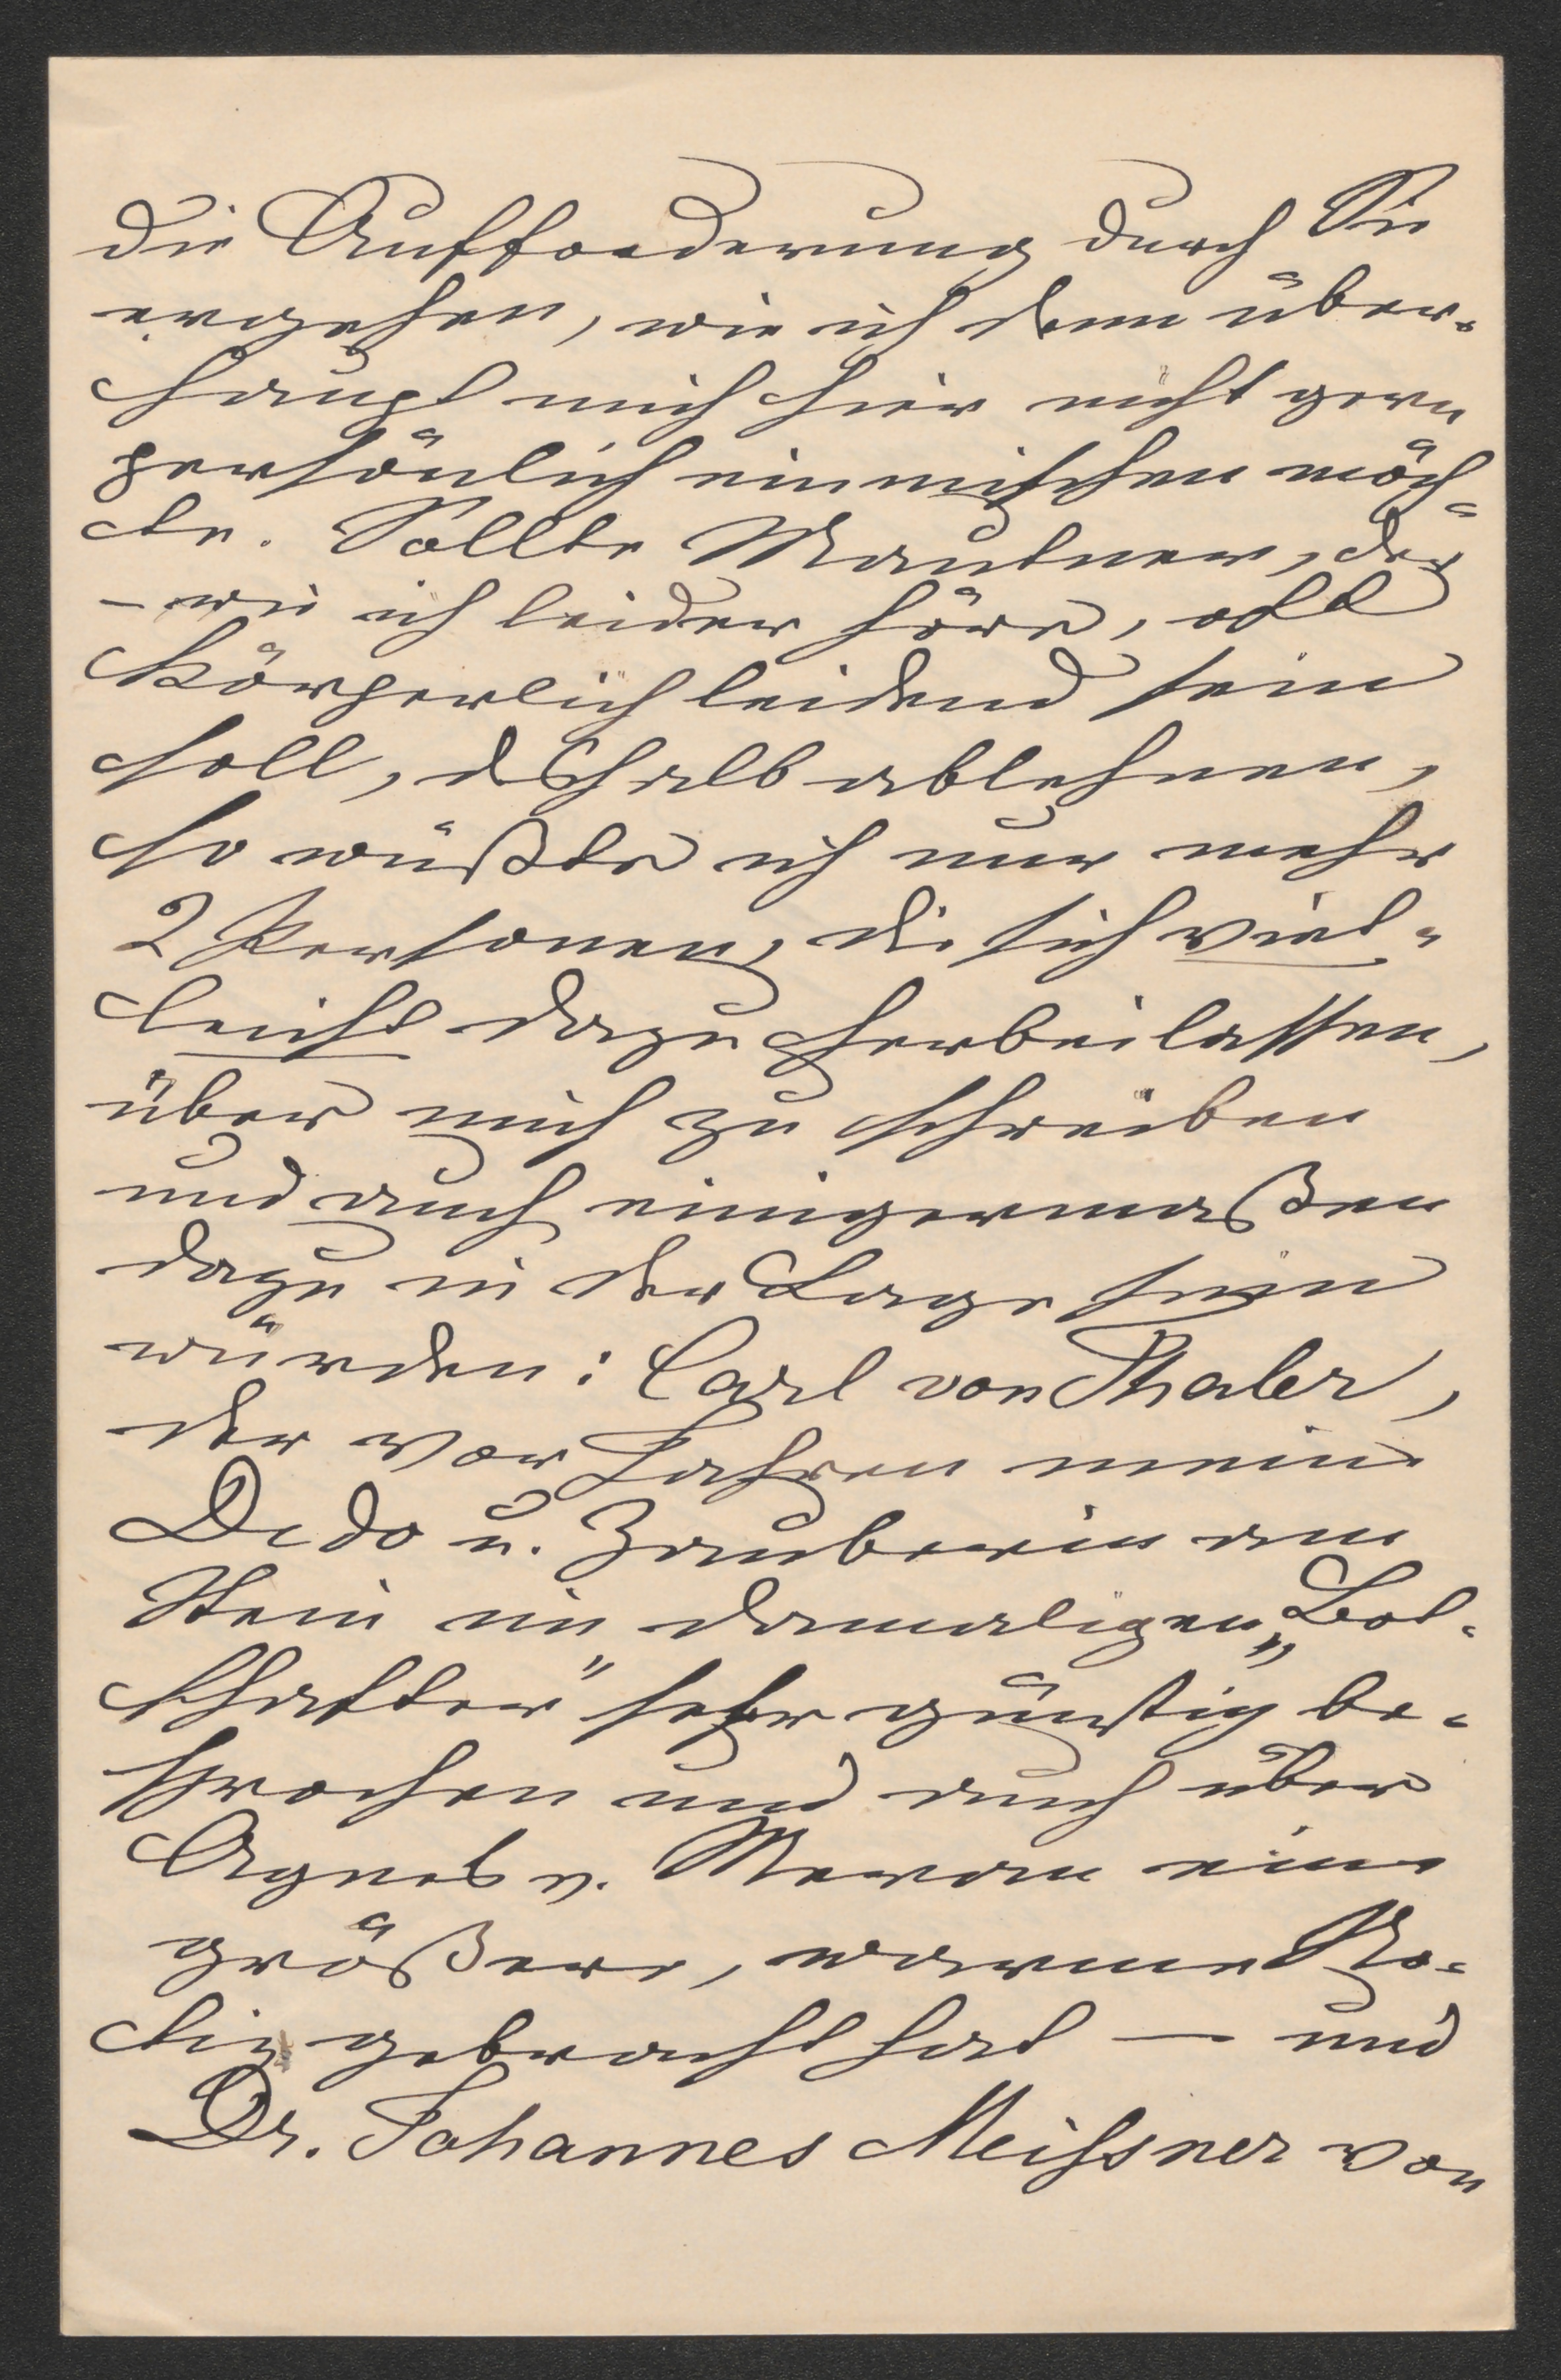 die Aufforderung durch Sie
ergehen, wie ich denn über-
haupt mich hier nicht gern
persönlich einmischen möch-
te. Sollte Mautner, der
– wie ich leider höre, oft
körperlich leidend sein
soll, deshalb ablehnen,
so wüßte ich nur mehr
2 Personen, die sich viel-
leicht dazu herbeilassen,
über mich zu schreiben
und auch einigermaßen
dazu in der Lage sein
würden: Carl von Thaler,
der vor Jahren meine
Dido u. Zauberin am
Stein im damaligen „Bot-
schafter" sehr günstig be-
sprochen und auch über
Agnes v. Meran eine
größere, warme No-
tiz gebracht hat — und
Dr. Johannes Meißner von